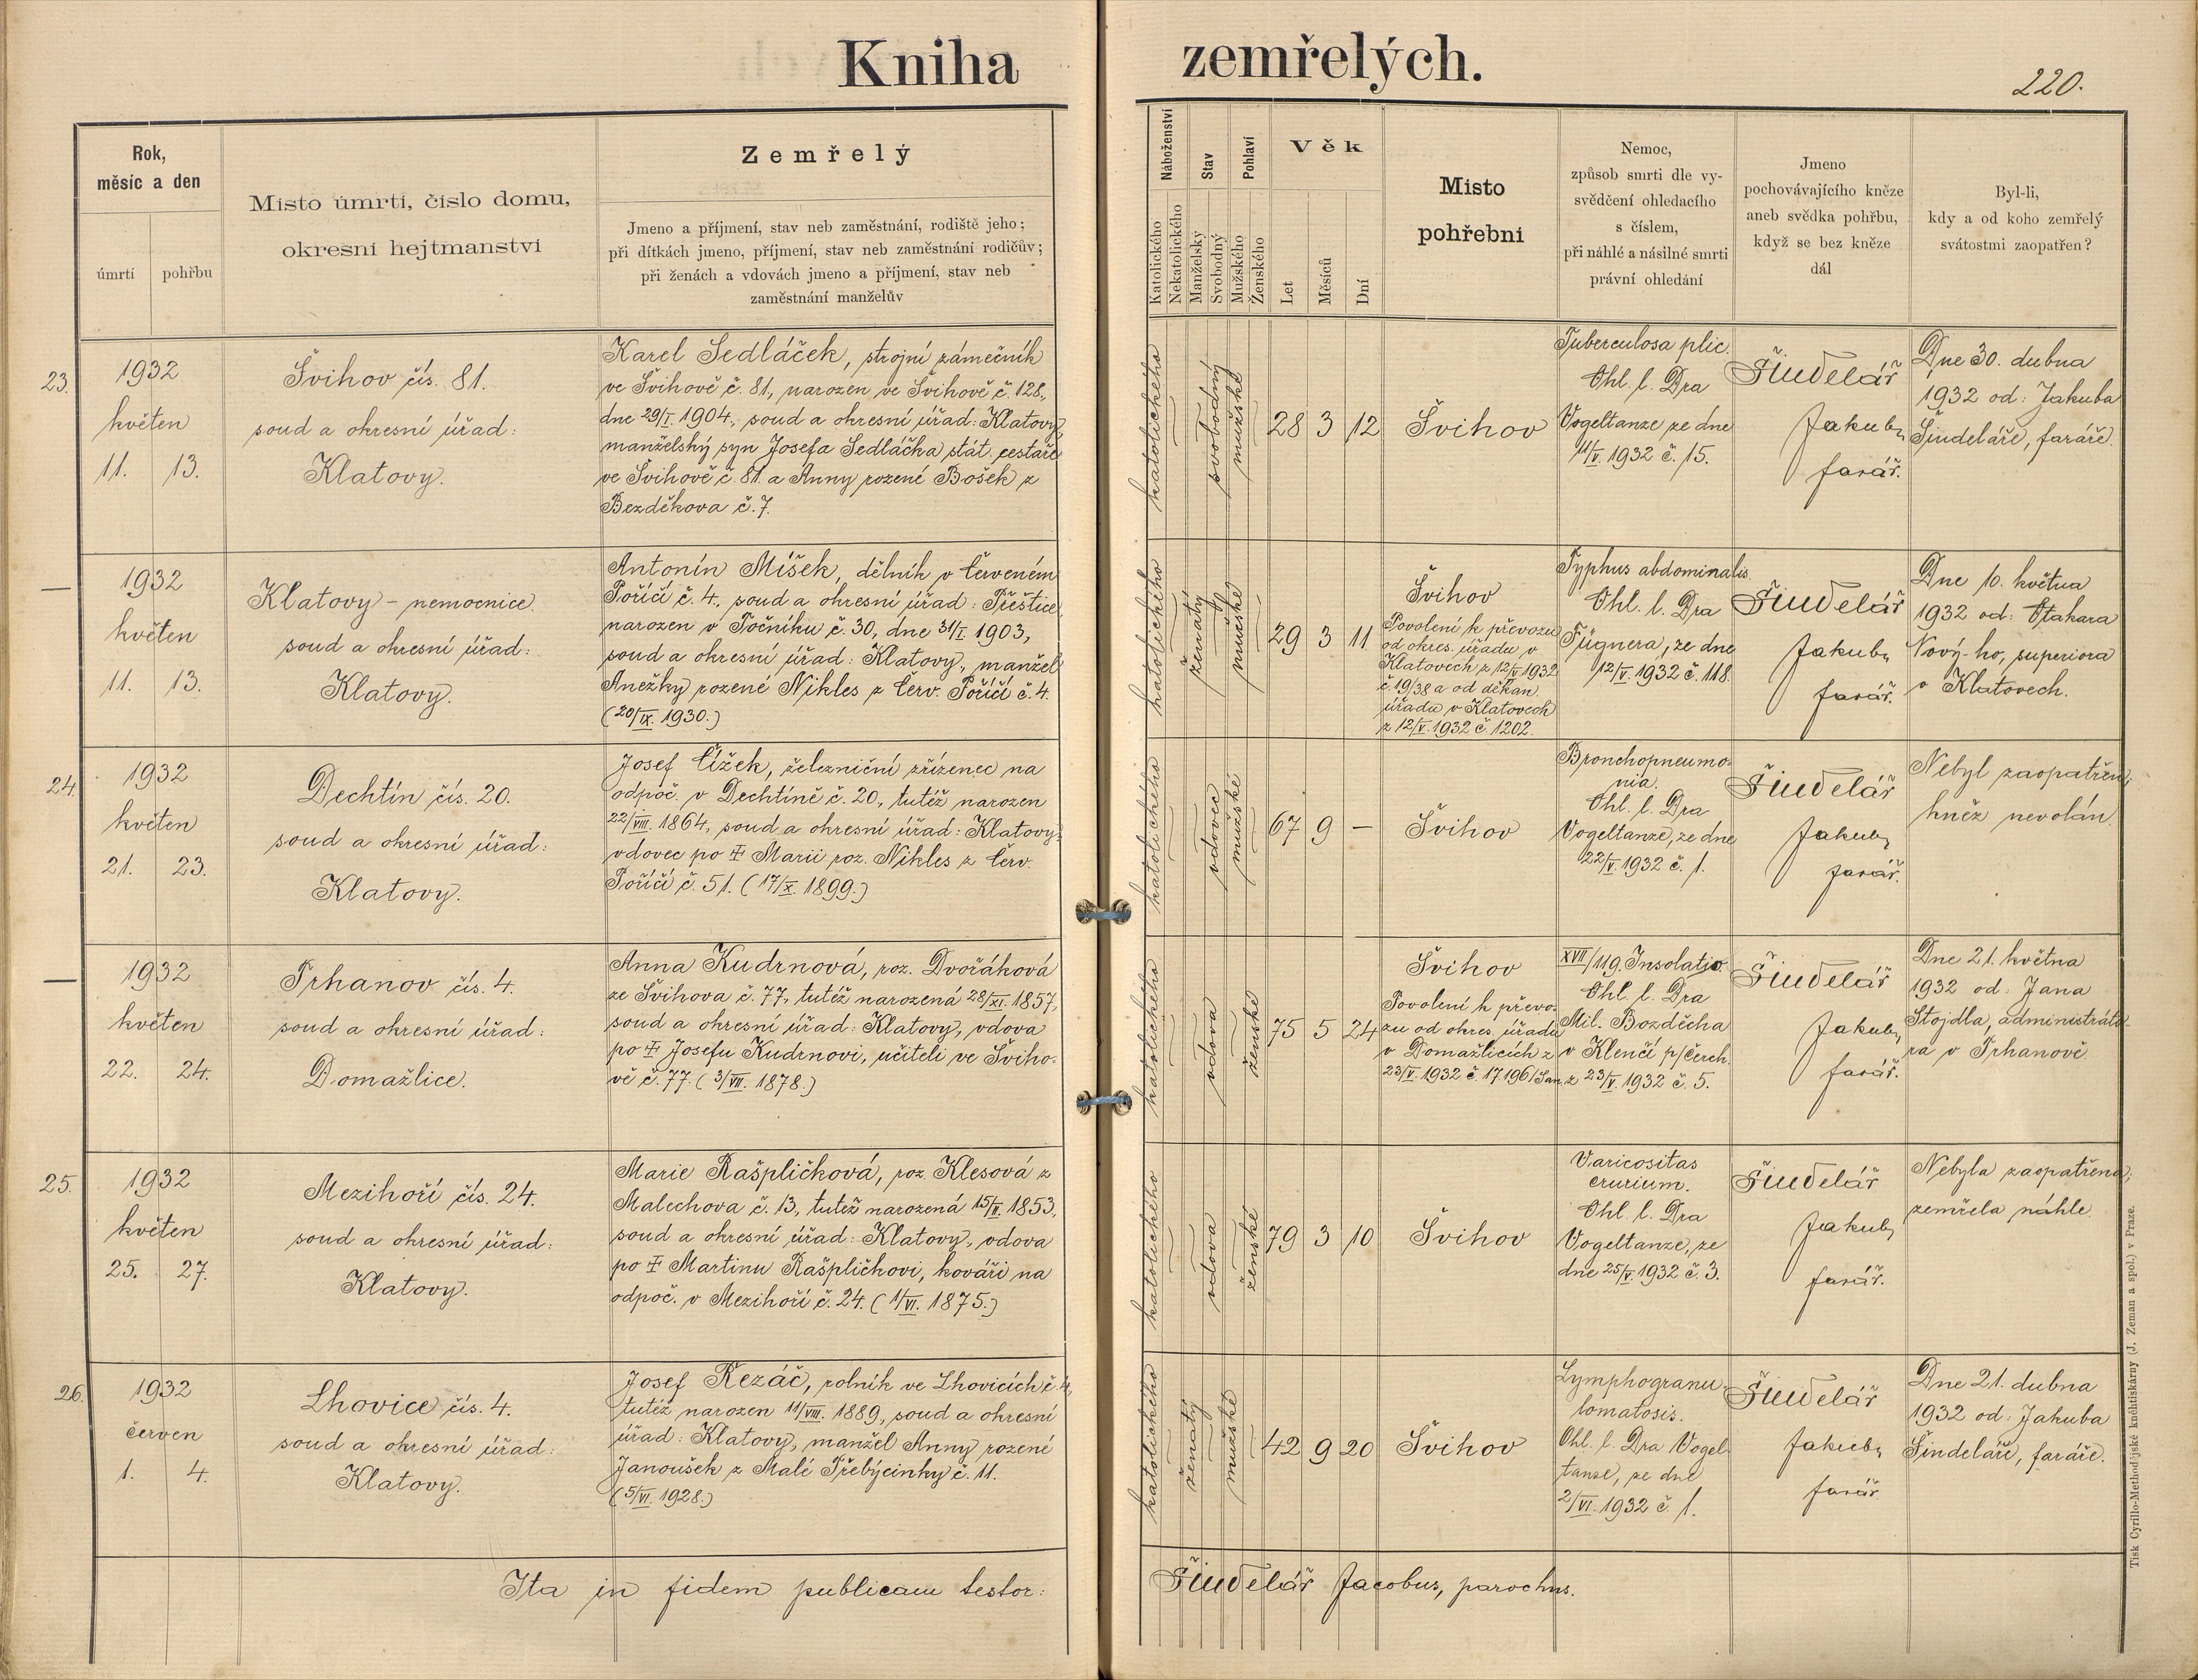 Kniha zemřelých.
220.
Rok,
měsíc a den
úmrtí
pohřbu
Místo úmrtí, číslo domu,
okresní hejtmanství
Zemřelý
Jmeno a příjmení, stav neb zaměstnání, rodiště jeho;
při dítkách jmeno, příjmení, stav neb zaměstnání rodičův;
při ženách a vdovách jmeno a příjmení, stav neb
zaměstnání manželův
Náboženství
Katolického
Nekatolického
Stav
Manželský
Svobodný
Pohlaví
Mužského
Ženského
Věk
Let
Měsíců
Dní
Místo
pohřební
Nemoc,
způsob smrti dle vy-
svědčení ohledacího
s číslem,
při náhlé a násilné smrti
právní ohledání
Jmeno
pochovávajícího kněze
aneb svědka pohřbu,
když se bez kněze
dál
Byl-li,
kdy a od koho zemřelý
svátostmi zaopatřen?
23.
1932
květen
11. 13.
Švihov čís. 81.
soud a okresní úřad:
Klatovy.
Karel Sedláček, strojní zámečník
ve Švihově č. 81, narozen ve Švihově č. 128,
dne 29/I. 1904, soud a okresní úřad: Klatovy,
manželský syn Josefa Sedláčka stát. cestáře
ve Švihově č. 81. a Anny rozené Bošek z
Bezděkova č. 7.
katolického
svobodný
mužské
28 3 12
Švihov
Tuberculosa plic.
Ohl. l. Dra
Vogeltanze ze dne
11/V. 1932 č. 15.
Šindelář
Jakub,
farář.
Dne 30. dubna
1932 od: Jakuba
Šindeláře, faráře.
—
1932
květen
11. 13.
Klatovy - nemocnice.
soud a okresní úřad:
Klatovy.
Antonín Míšek, dělník v Červeném
Poříčí č. 4., soud a okresní úřad: Přeštice,
narozen v Točníku č. 30, dne 31/I. 1903,
soud a okresní úřad: Klatovy, manžel
Anežky rozené Nikles z Červ. Poříčí č. 4.
(20/IX. 1930.)
katolického
ženatý
mužské
29 3 11
Švihov
Povolení k převozu
od okres. úřadu v
Klatovech z 12/V. 1932
č. 19/38 a od děkan.
úřadu v Klatovech
z 12/V. 1932 č. 1202.
Typhus abdominalis.
Ohl. l. Dra
Fügnera, ze dne
12/V. 1932 č. 118.
Šindelář
Jakub,
farář.
Dne 10. května
1932 od: Otakara
Nový-ho, superiora
v Klatovech.
24.
1932
květen
21. 23.
Dechtín čís. 20.
soud a okresní úřad:
Klatovy.
Josef Čížek, železniční zřízenec na
odpoč. v Dechtíně č. 20, tutéž narozen
22/VIII. 1864, soud a okresní úřad: Klatovy,
vdovec po ✝ Marii roz. Nikles z Červ.
Poříčí č. 51. (17/X. 1899.)
katolického
vdovec
mužské
67 9 —
Švihov
Bronchopneumo-
nia.
Ohl. l. Dra
Vogeltanze, ze dne
22/V. 1932 č. 1.
Šindelář
Jakub,
farář.
Nebyl zaopatřen;
kněz nevolán.
—
1932
květen
22. 24.
Trhanov čís. 4.
soud a okresní úřad:
Domažlice.
Anna Kudrnová, roz. Dvořáková
ze Švihova č. 77, tutéž narozená 28/XI. 1857,
soud a okresní úřad: Klatovy, vdova
po ✝ Josefu Kudrnovi, učiteli ve Šviho-
vě č. 77. (3/VII. 1878.)
katolického
vdova
ženské
75 5 24
Švihov
Povolení k převo-
zu od okres. úřadu
v Domažlicích z
23/V. 1932 č. 17.196/San.
XVII/119. Insolatio.
Ohl. l. Dra
Mil. Bozděcha
v Klenčí p/Čerch.
z 23/V. 1932 č. 5.
Šindelář
Jakub,
farář.
Dne 21. května
1932 od: Jana
Stojdla, administráto-
ra v Trhanově.
25.
1932
květen
25. 27.
Mezihoří čís. 24.
soud a okresní úřad:
Klatovy.
Marie Rašpličková, roz. Klesová z
Malechova č. 13, tutéž narozená 15/II. 1853,
soud a okresní úřad: Klatovy, vdova
po ✝ Martinu Rašpličkovi, kováři na
odpoč. v Mezihoří č. 24. (1/VI. 1875.)
katolického
vdova
ženské
79 3 10
Švihov
Varicositas
crurium.
Ohl. l. Dra
Vogeltanze, ze
dne 25/V. 1932 č. 3.
Šindelář
Jakub,
farář.
Nebyla zaopatřena;
zemřela náhle.
26.
1932
červen
1. 4.
Lhovice čís. 4.
soud a okresní úřad:
Klatovy.
Josef Řezáč, rolník ve Lhovicích č. 4,
tutéž narozen 11/VIII. 1889, soud a okresní
úřad: Klatovy, manžel Anny rozené
Janoušek z Malé Třebýcinky č. 11.
(5/VI. 1928.)
katolického
ženatý
mužské
42 9 20
Švihov
Lymphogranu-
lomatosis.
Ohl. l. Dra Vogel-
tanze, ze dne
2/VI. 1932 č. 1.
Šindelář
Jakub,
farář.
Dne 21. dubna
1932 od: Jakuba
Šindeláře, faráře.
Ita in fidem publicam testor: Šindelář Jacobus, parochus.
Tisk Cyrillo-Methodějské knihtiskárny (J. Zeman a spol.) v Praze.